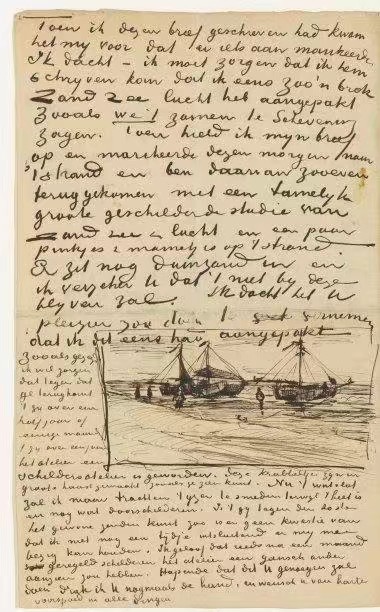 Toen ik dezen brief geschreven had kwam
het my voor dat er iets aan mankeerde.
Ik dacht – ik moet zorgen dat ik hem
schryven kan dat ik eens zoo'n brok
zand zee lucht heb aangepakt
zooals we 't zamen te Schevening
zagen. Toen hield ik myn brief
op en marcheerde dezen morgen naar
't strand en ben daarvan zooeven
teruggekomen met een tamelyk
groote geschilderde studie van
zand zee & lucht en een paar
pinkjes & mannetjes op 't strand.
Er zit nog duinzand in en
ik verzeker U dat 't niet by deze
blyven zal. Ik dacht het U
plezier zou doen te vernemen
dat ik dit eens had aangepakt
zooals gezegd
ik wil zorgen
dat tegen dat
ge terugkomt
't zy over een
half jaar of
eenige maand
't zy over een jaar
het atelier een
schildersatelier is geworden. Deze krabbeltjes zyn in
groote haast gemaakt zooals je zien kunt. Nu 't wat vlot
zal ik maar trachten 't yzer te smeden terwyl 't heet is
en nog wat doorschilderen.
het gewone zenden kunt zoo is er geen kwestie van
dat ik met nog een tydje uitsluitend er my mee
bezig kan houden. Ik geloof dat reeds na een maand
geregeld schilderen het atelier een gansch ander
aanzien zou hebben. Hopende dat dit U genoegen zal
doen druk ik U nogmaals de hand, en wensch U van harte
voorspoed in alle dingen